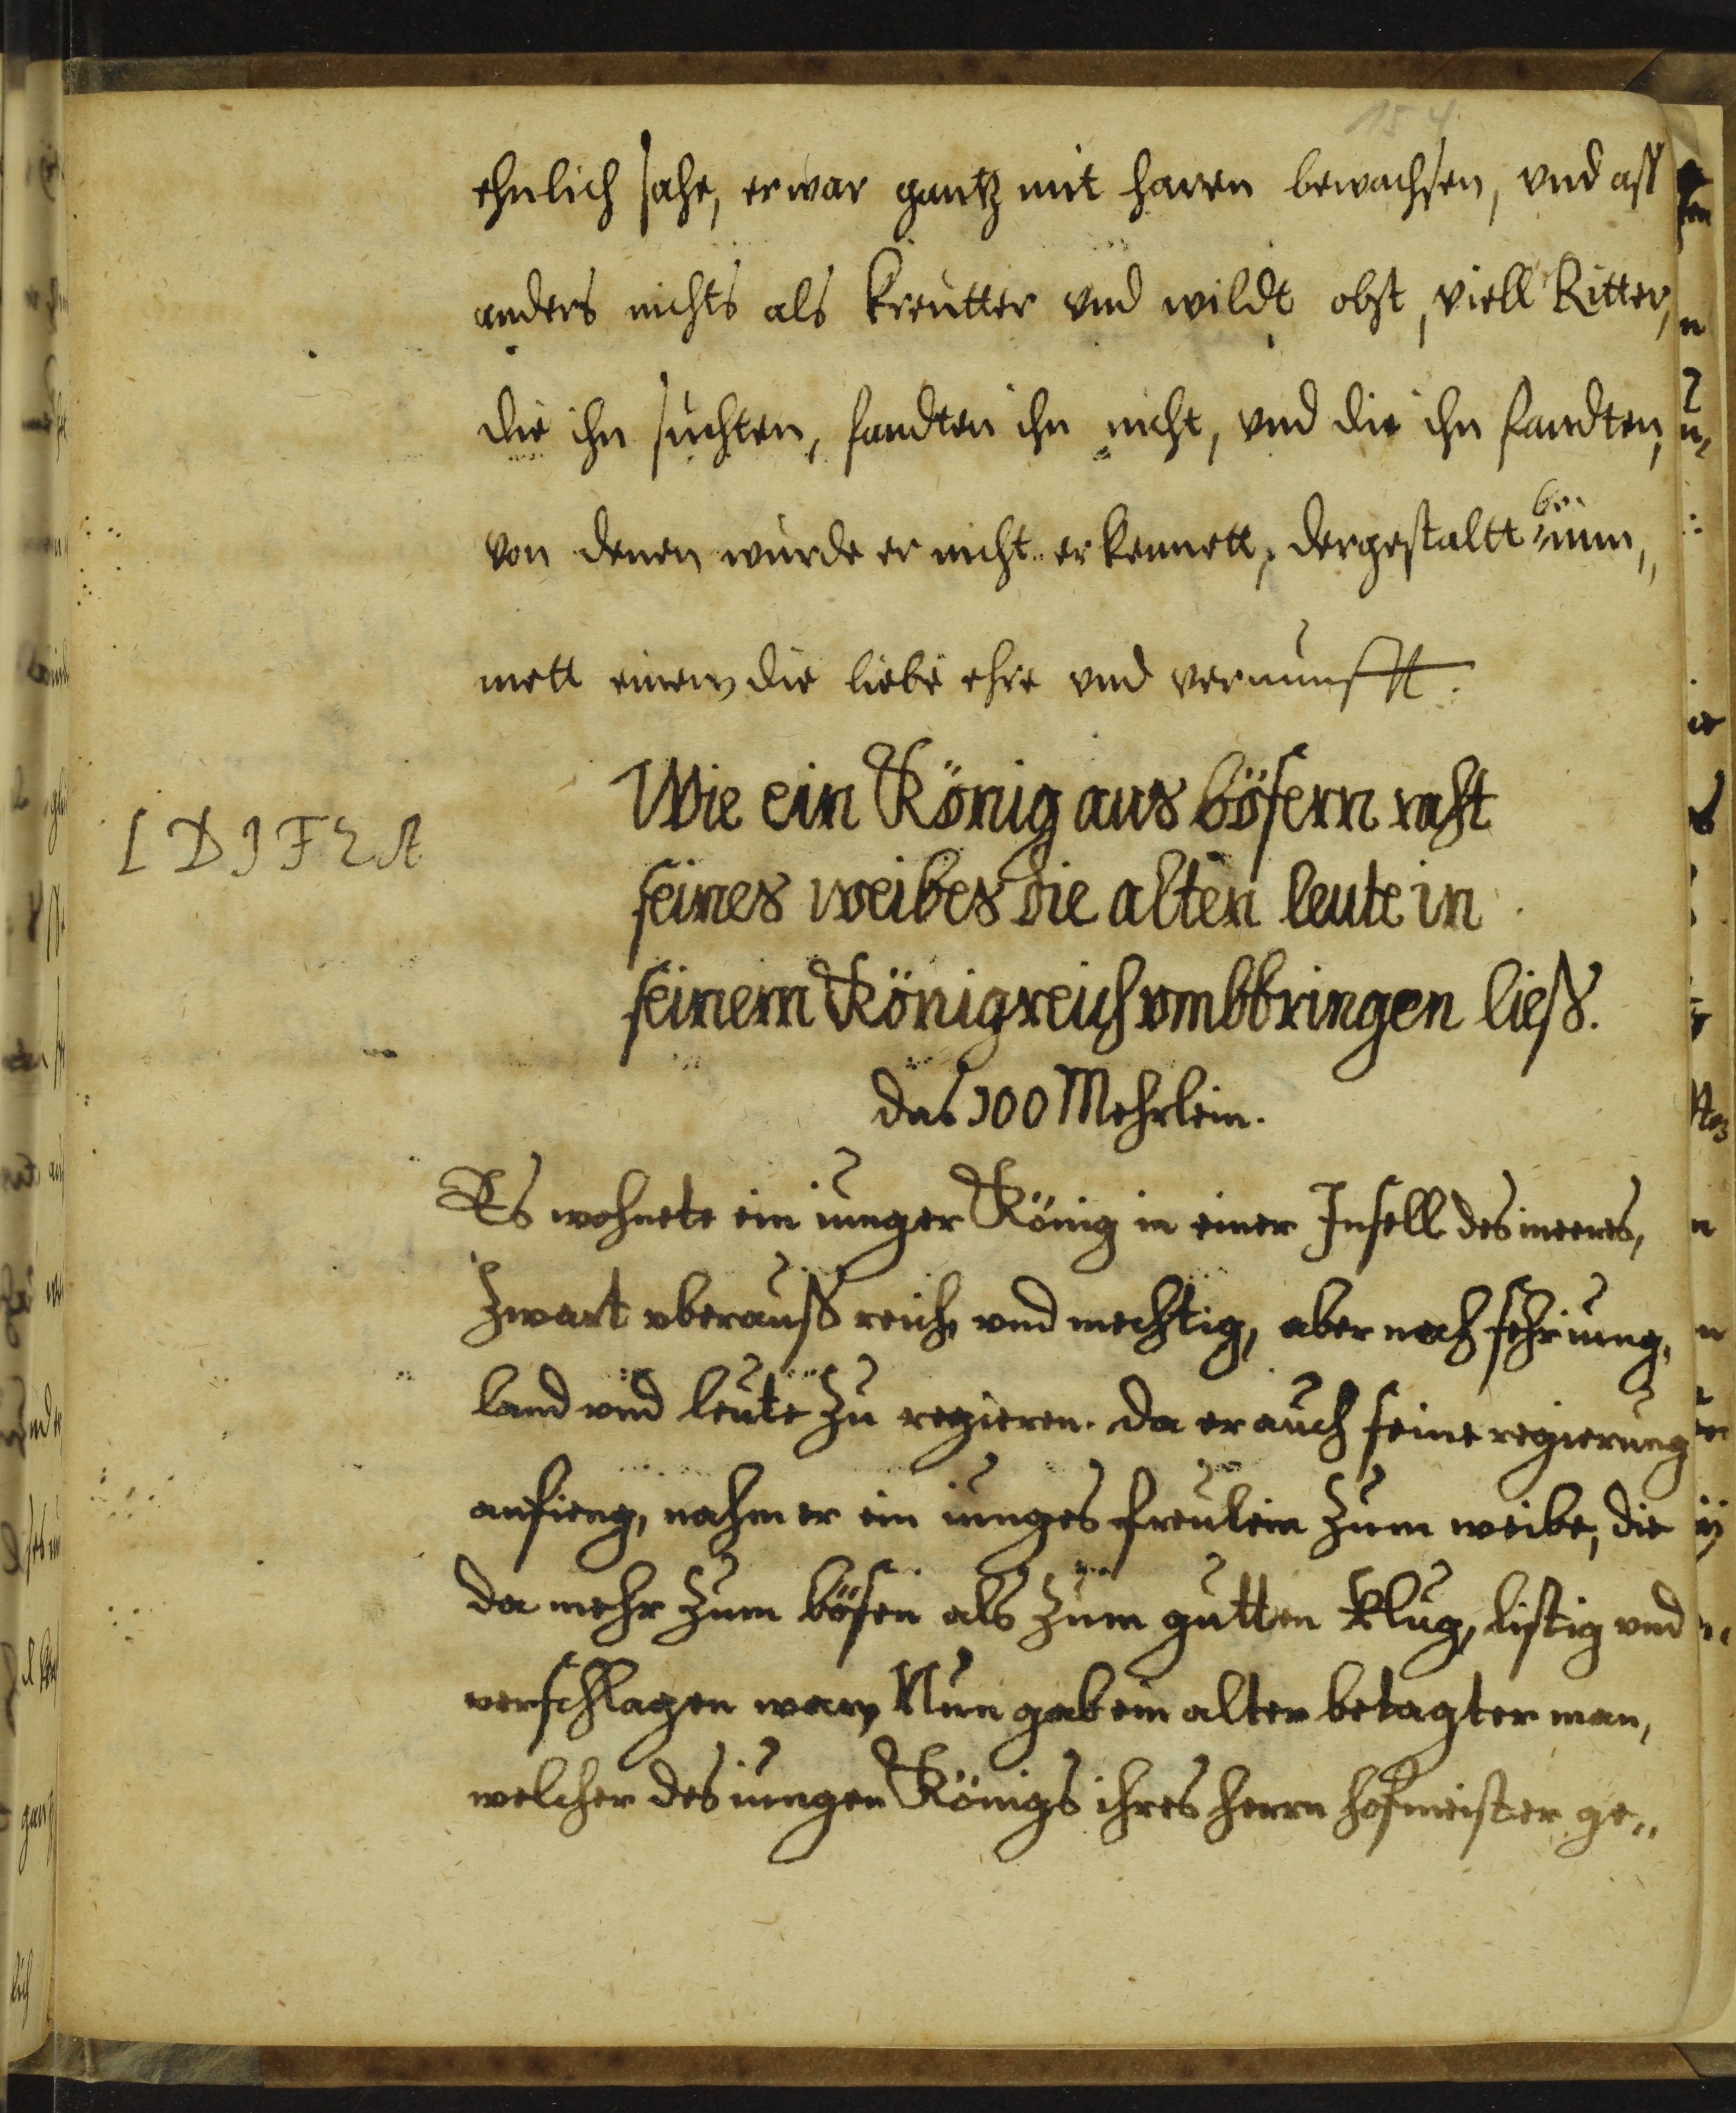 154
ehnlich sahe, er war gantz mit haren bewachsen, vnd aß
anders nichts als kreutter vnd wildt obst, viell Ritter,
die ihn suchten, fandten ihn nicht, vnd die ihn fandten,
von denen wurde er nicht erkennett, dergestaltt benim,,
mett einem die liebe ehre vnd vernunfft.
Wie ein König aus bösem raht
seines weibes die alten leute in
seinem Königreich vmbbringen ließ.
das 100 Mehrlein.
Es wohnete ein iunger König in einer Insell des meeres,
zwart vberauß reich vnd mechtig, aber noch sehr iung,
land vnd leute zu regieren. da er auch seine regierung
anfieng, nahm er ein iunges freulein zum weibe, die
da mehr zum bösen als zum gutten klug, listig vnd
verschlagen war, Nun gab ein alter betagter man,
welcher des iungen Königs ihres herrn hofmeister ge,,